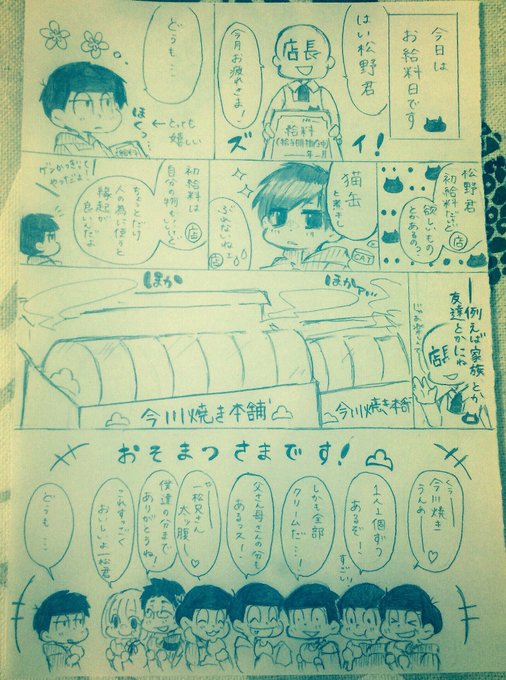 今日は
お給料日です
はい松野君
店長
今月お疲れさま！
給料
イ！
ズ
どうも…
ほくっ…
←とっても
嬉しい
松野君
初給料だけど
欲しいもの
とかあるの？
店
猫缶
と煮干し
CAT
ぶれないね
店
初給料は
自分の物もいいけど
ちょっとだけ
人の為に使うと
縁起が
良いんだよ
店
ゲンかつぎって
やつだよ！
例えば家族とか
友達とかにね
店長
ほかぁ
ほか
今川焼き本舗
今川焼き本舗
おそまつさまです！
くぅーっ
今川焼き
うんめー♡
1人1個ずつ
あるぞ！
すごい！
しかも全部
クリームだ…！
父さん母さんの分も
あるッス！
一松兄さん
太ッ腹ー♡
僕達の分まで
ありがとうね！
これすっごく
おいしいよ一松君
どうも…